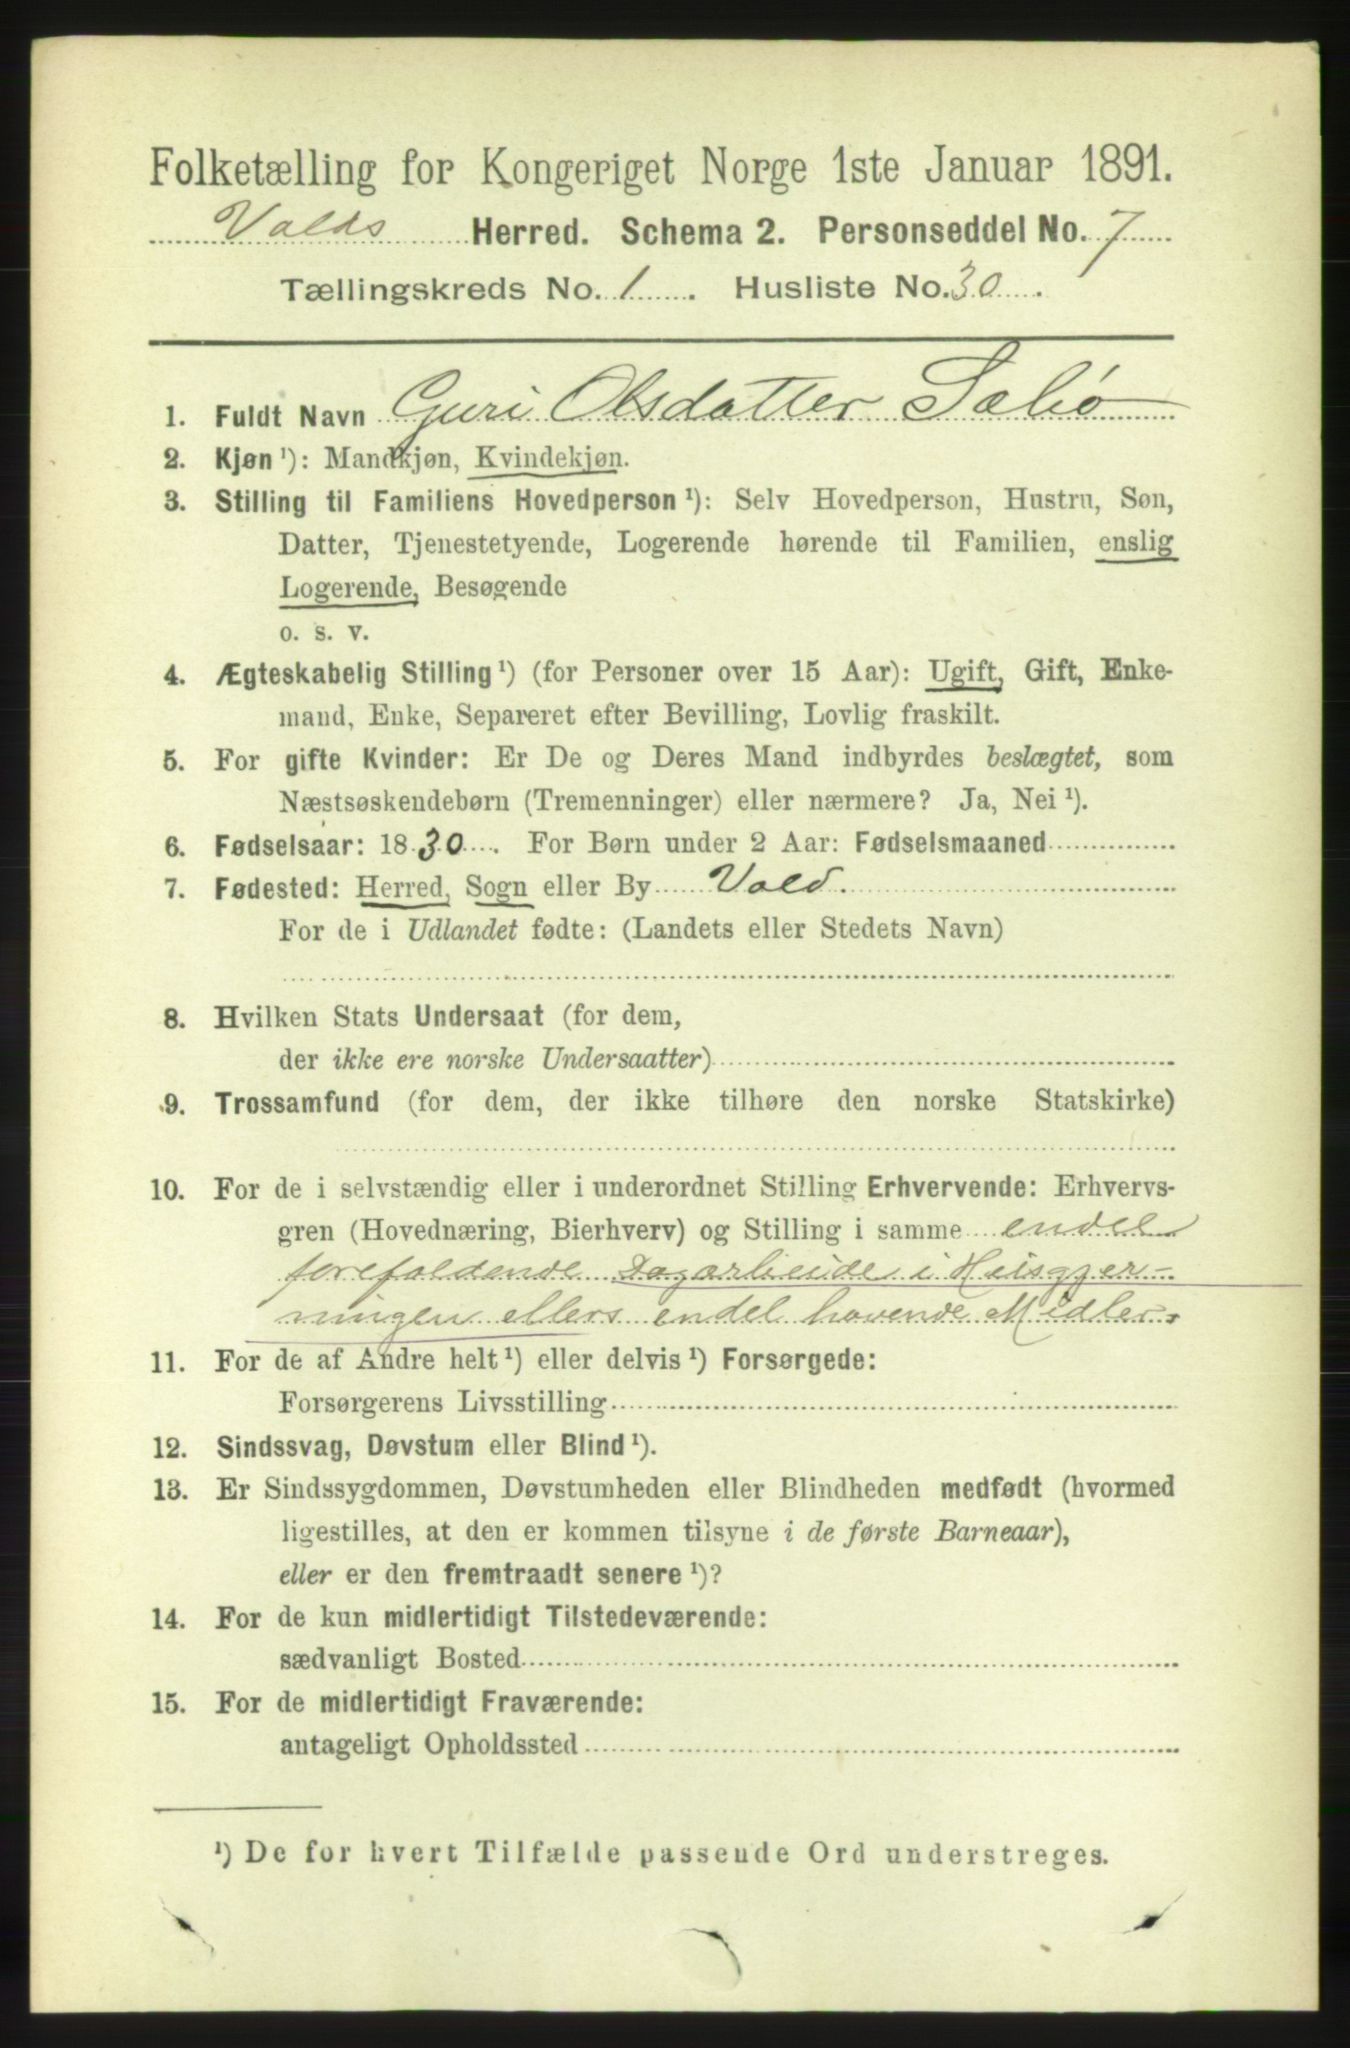 Folketælling for Kongeriget Norge 1ste Januar 1891.
Volds Herred. Schema 2. Personseddel No. 7
Tællingskreds No. 1. Husliste No. 30.
1. Fuldt Navn Guri Olsdatter Sæbø
2. Kjøn ¹): Mandkjøn, Kvindekjøn.
3. Stilling til Familiens Hovedperson ¹): Selv Hovedperson, Hustru, Søn,
Datter, Tjenestetyende, Logerende hørende til Familien, enslig
Logerende, Besøgende
o. s. v.
4. Ægteskabelig Stilling ¹) (for Personer over 15 Aar): Ugift, Gift, Enke-
mand, Enke, Separeret efter Bevilling, Lovlig fraskilt.
5. For gifte Kvinder: Er De og Deres Mand indbyrdes beslægtet, som
Næstsøskendebørn (Tremenninger) eller nærmere? Ja, Nei ¹).
6. Fødselsaar: 1830. For Børn under 2 Aar: Fødselsmaaned
7. Fødested: Herred, Sogn eller By Vold.
For de i Udlandet fødte: (Landets eller Stedets Navn)
8. Hvilken Stats Undersaat (for dem,
der ikke ere norske Undersaatter)
9. Trossamfund (for dem, der ikke tilhøre den norske Statskirke)
10. For de i selvstændig eller i underordnet Stilling Erhvervende: Erhvervs-
gren (Hovednæring, Bierhverv) og Stilling i samme endel
forefaldende Dagarbeide i Husgjer-
ningen ellers endel havende Midler.
11. For de af Andre helt ¹) eller delvis ¹) Forsørgede:
Forsørgerens Livsstilling
12. Sindssvag, Døvstum eller Blind ¹).
13. Er Sindssygdommen, Døvstumheden eller Blindheden medfødt (hvormed
ligestilles, at den er kommen tilsyne i de første Barneaar),
eller er den fremtraadt senere ¹)?
14. For de kun midlertidigt Tilstedeværende:
sædvanligt Bosted
15. For de midlertidigt Fraværende:
antageligt Opholdssted
¹) De for hvert Tilfælde passende Ord understreges.